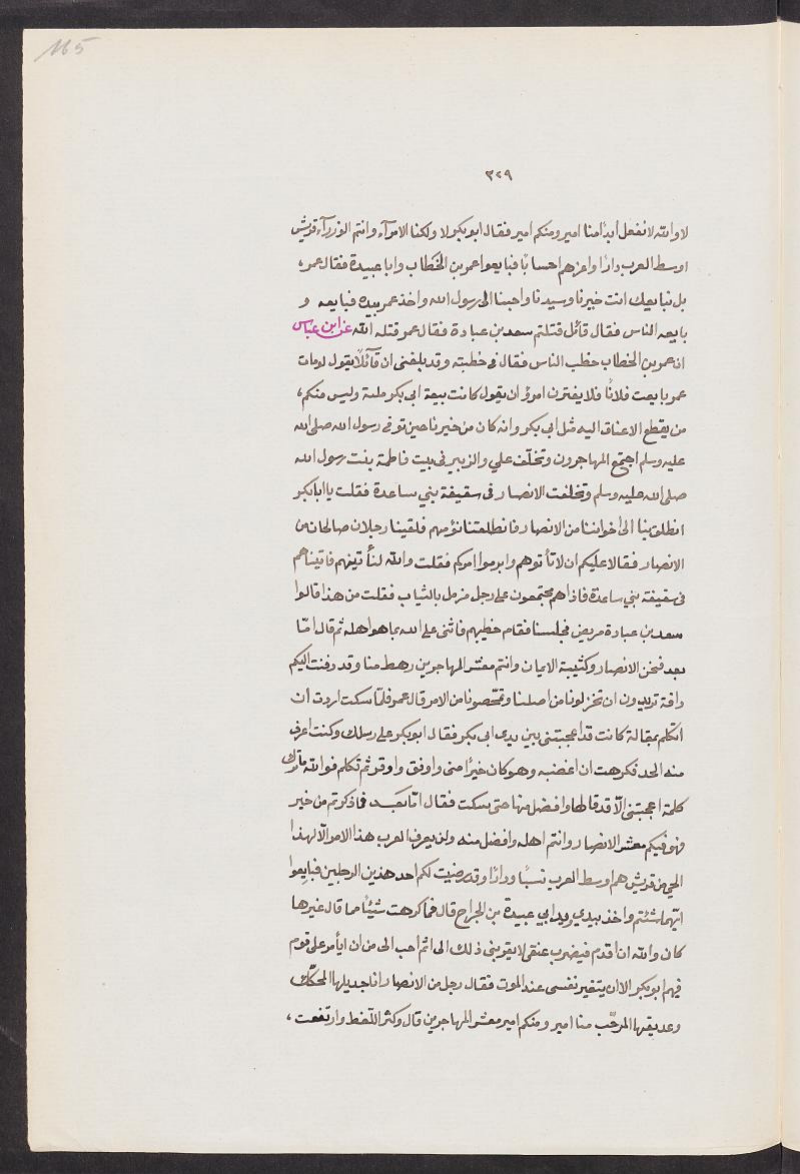 165
٣٢٩
لا والله لا نفعل أبدًا منا امير ومنكم امير فقال ابو بكر لا ولكنا الامرآء وانتم الوزرآء قريش
اوسط العرب دارًا واعزهم احسابًا فبايعوا عمر بن الخطاب وابا عبيدة فقال عمر،
بل نبايعك انت خيرنا وسيدنا واحبنا الى رسول الله واخذ عمر بيده فبايعه و
بايعه الناس فقال قائل قتلتم سعد بن عبادة فقال عمر قتله الله عن ابن عباس
ان عمر بن الخطاب خطب الناس فقال فى خطبته وقد بلغنى ان قآئلًا يقول لو مات
عمر بايعت فلانًا فلا يغترن امرؤ ان يقول كانت بيعة ابى بكر فلتة وليس منكم،
من يقطع الاعناق اليه مثل ابى بكر وانه كان من خيرنا حين توفى رسول الله صلى الله
عليه وسلم اجتمع المهاجرون وتخلّف علي والزبير فى بيت فاطمة بنت رسول الله
صلى الله عليه وسلم وتخلفت الانصار فى سقيفة بني ساعدة فقلت يا ابا بكر
انطلق بنا الى اخواننا من الانصار فانطلقنا نؤمهم فلقينا رجلان صالحان من
الانصار فقالا عليكم ان لا تأتوهم وابرموا امركم فقلت والله لنأتينهم فاتيناهم
فى سقيفة بني ساعدة فاذا هم مجتمعون على رجل مزمل بالثياب فقلت من هذا قالوا
سعد بن عبادة مريض فجلسنا فقام خطيبهم فاثنى على الله بما هو اهله ثم قال امّا
بعد فنحن الانصار وكتيبة الايمان وانتم معشر المهاجرين رهط منا وقد دفت اليكم
دافة تريدون ان تخزلونا من اصلنا وتحصونا من الامر قال عمر فلمّا سكت اردت ان
اتكلم بمقالة كانت قد اعجبتنى بين يدى ابى بكر فقال ابو بكر على رسلك وكنت اعرف
منه الحد فكرهت ان اغضبه وهو كان خيرًا منى واوفق واوقر ثم تكلم فوالله ما ترك
كلمة اعجبتنى الّا قد قالها وافضل منها حتى سكت فقال امّا بعد فما ذكرتم من خير
فهو فيكم معشر الانصار وانتم اهله وافضل منه ولن يعرف العرب هذا الامر الّا لهذا
الحي من قريش هم اوسط العرب نسبًا ودارًا وقد رضيت لكم احد هذين الرجلين فبايعوا
ايهما شئتم واخذ بيدي ويد ابي عبيدة بن الجراح قال فما كرهت شيئًا مما قال غيرها
كان والله ان اقدم فيضرب عنقى لا يقربنى ذلك الى اثم احب الى من ان ايأمر على قوم
فيهم ابو بكر الا ان يتغير نفسى عند الموت فقال رجل من الانصار انا جديلها المحكك
وعذيقها المرجّب منا امير ومنكم امير معشر المهاجرين قال وكثر اللغط وارتفعت،